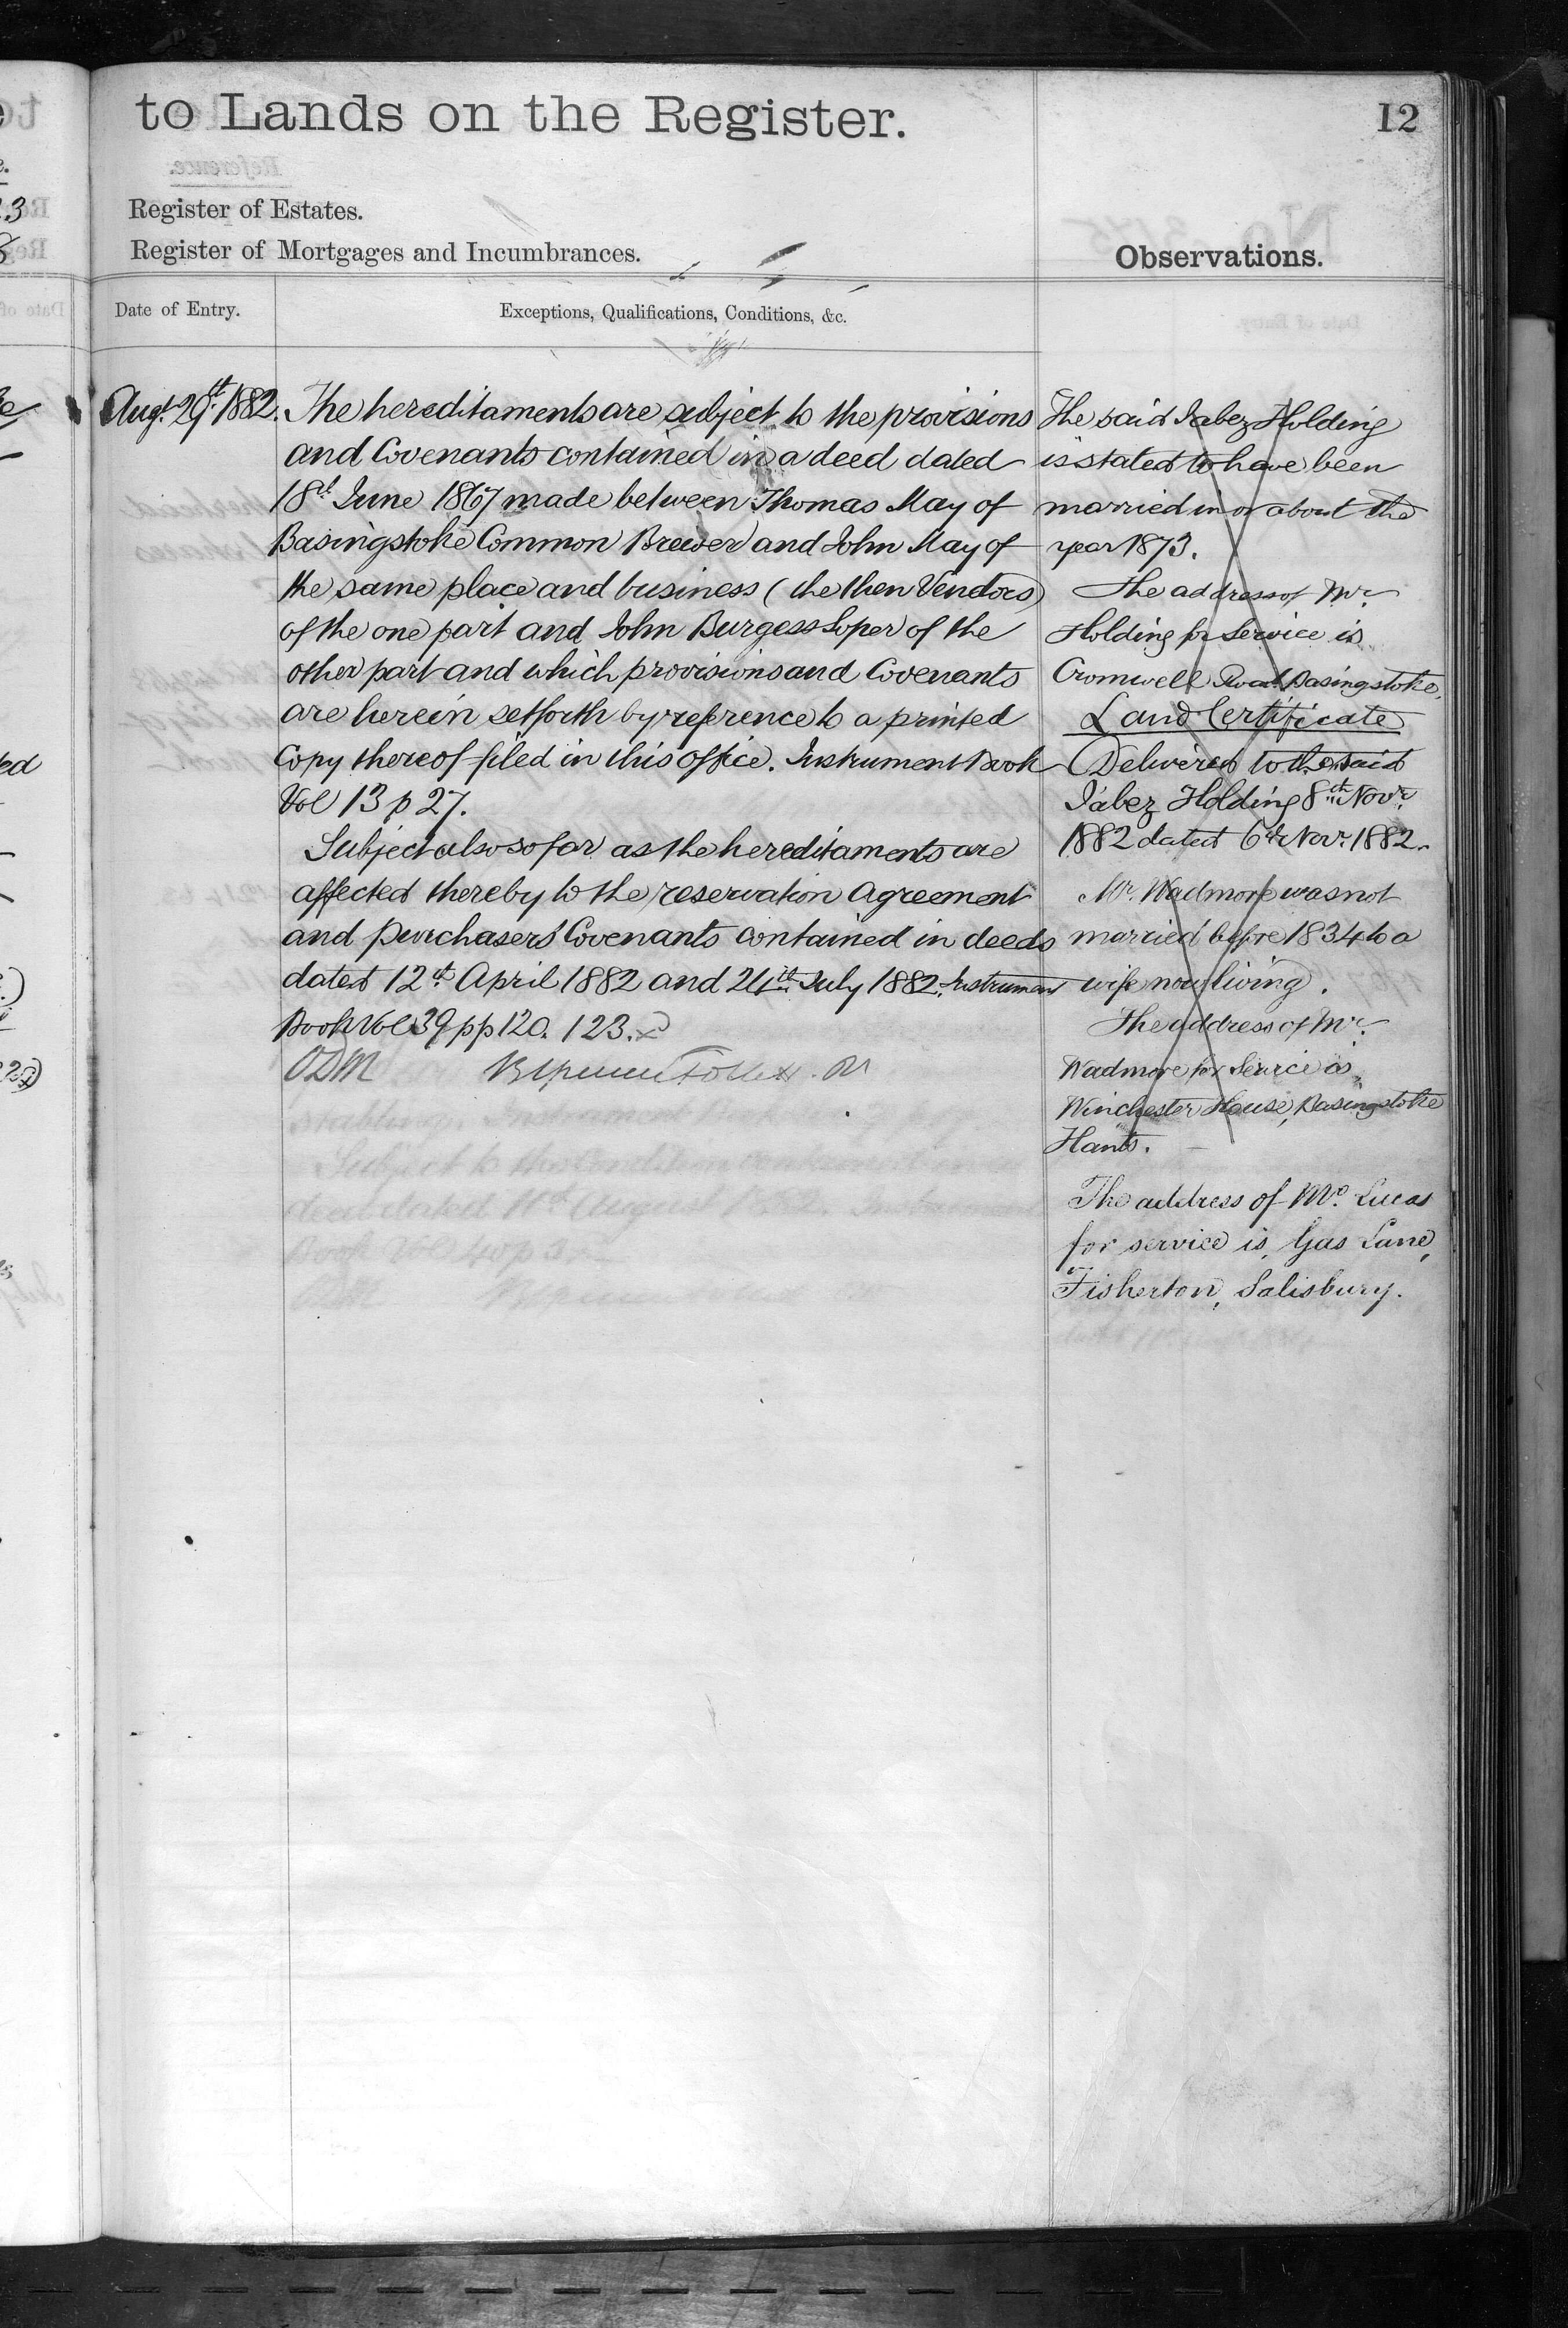 to Lands on the Register.
12
Register of Estates.
Register of Mortgages and Incumbrances.
Observations.
Date of Entry.
Exceptions, Qualifications, Conditions, &c.
Augt. 29th 1882.
The hereditaments are subject to the provisions
and Covenants contained in a deed dated
18th June 1867 made between Thomas May of
Basingstoke Common Brewer and John May of
the same place and business (the then Vendors)
of the one part and John Burgess Soper of the
other part and which provisions and Covenants
are herein set forth by reference to a printed
Copy thereof filed in this office. Instrument Book
Vol 13 p 27.
Subject also so far as the hereditaments are
affected thereby to the reservation Agreement
and purchasers' Covenants contained in deeds
dated 12th April 1882 and 24th July 1882. Instrument
Book Vol 39 pp 120. 123.
ODM
The said Jabez Holding
is stated to have been
married in or about the
year 1873.
The address of Mr.
Holding for Service is
Cromwell Road Basingstoke.
Land Certificate
Delivered to the said
Jabez Holding 8th Novr.
1882 dated 6th Novr. 1882.
Mr. Wadmore was not
married before 1834 to a
wife now living.
The address of Mr.
Wadmore for Service is
Winchester House, Basingstoke
Hants.
The address of Mr. Lucas
for service is, Gas Lane,
Fisherton, Salisbury.